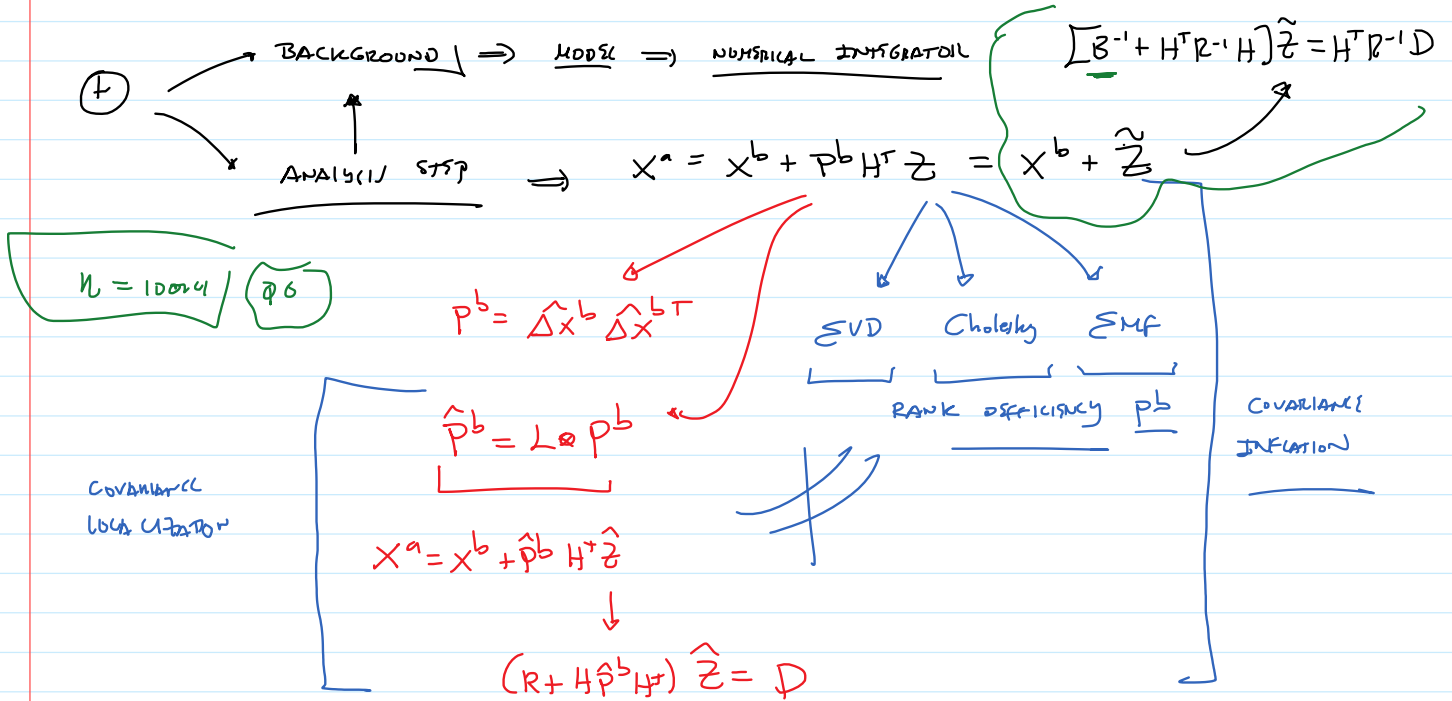 BACKGROUND ⇒ MODEL ⇒ NUMERICAL INTEGRATOR
[B⁻¹ + HᵀR⁻¹H] Z̃ = HᵀR⁻¹D
t
ANALYSIS STEP ⇒ Xᵃ = Xᵇ + PᵇHᵀZ = Xᵇ + Z̃
Pᵇ = Δ̂xᵇ Δ̂xᵇᵀ
EVD Cholesky EMF
RANK DEFFICIENCY Pᵇ
COVARIANCE
INFLATION
P̂ᵇ = L∘Pᵇ
COVARIANCE
LOCALIZATION
Xᵃ = Xᵇ + P̂ᵇHᵀẐ
(R + HP̂ᵇHᵀ) Ẑ = D